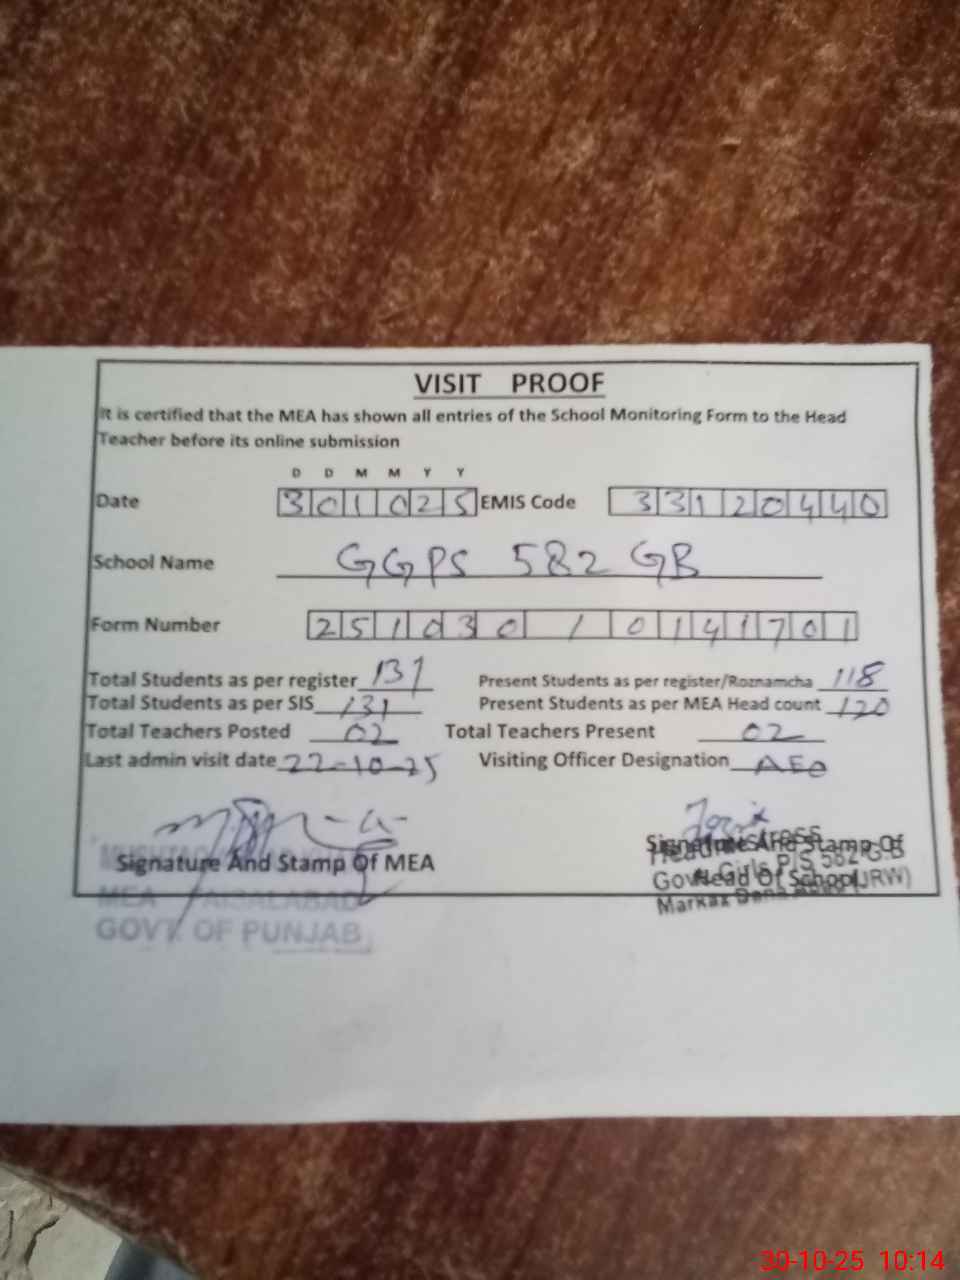 VISIT PROOF
It is certified that the MEA has shown all entries of the School Monitoring Form to the Head
Teacher before its online submission
D D M M Y Y
Date 301025 EMIS Code 33120440
School Name GGPS 582 GB
Form Number 251030/0141701
Total Students as per register 131 Present Students as per register/Roznamcha 118
Total Students as per SIS 131 Present Students as per MEA Head count 120
Total Teachers Posted 02 Total Teachers Present 02
Last admin visit date 22-10-25 Visiting Officer Designation AEO
Signature And Stamp Of MEA
MEA FAISALABAD
GOVT. OF PUNJAB
Signature And Stamp Of
Head Of School
Headmistress
Govt. Girls P/S 582 G.B
(JRW)
Markaz
30-10-25 10:14